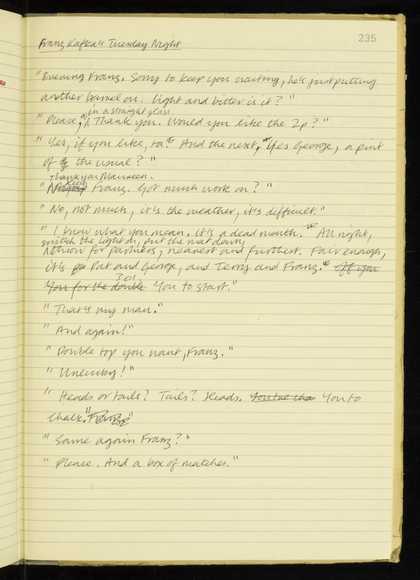 235
Franz Kafka's Tuesday Night
"Evening Franz. Sorry to keep you waiting, he's just putting
another barrel on. Light and bitter is it?"
in a straight glass
"Please, Thank you. Would you like the 2p?"
"Yes, if you like, ta." And the next, "Yes George, a pint
of the usual?"
Thank you Maureen.
Franz. Got much work on?"
"No, not much, it's the weather, it's difficult."
"I know what you mean. It's a dead month." "All right,
switch the light on, put the mat down,
for partners, nearest and furthest. Fair enough,
it's Pat and George, and Terry and Franz." If you
You for the double You to start."
"That's my man."
"And again!"
"Double top you want, Franz."
"Unlucky!"
"Heads or tails? Tails? Heads. You to
chalk."
"Same again Franz?"
"Please. And a box of matches."